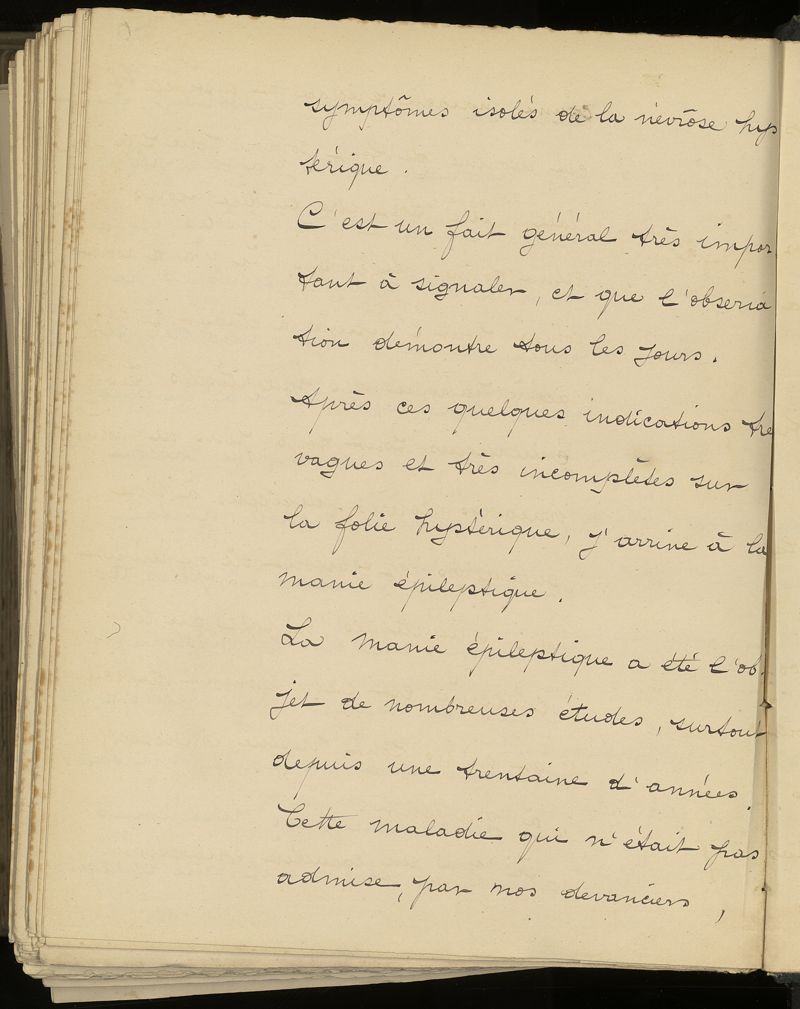 symptômes isolés de la névrose hys
térique.
C'est un fait général très impor
tant à signaler, et que l'observa
tion démontre tous les jours.
Après ces quelques indications tre
vagues et très incomplètes sur
la folie hystérique, j'arrive à la
manie épileptique.
La manie épileptique a été l'ob
jet de nombreuses études, surtout
depuis une trentaine d'années.
Cette maladie qui n'était pas
admise, par nos devanciers,